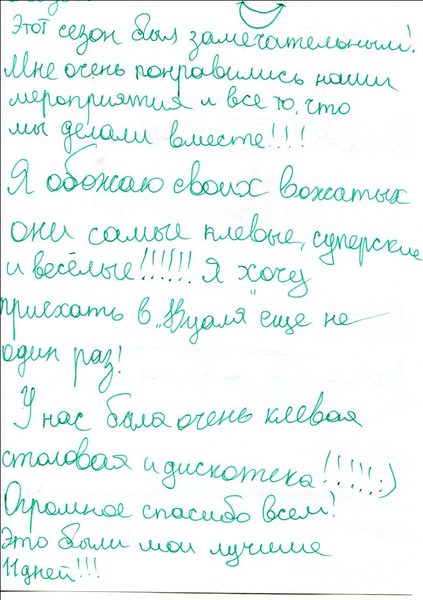 Этот сезон был замечательным!
Мне очень понравились наши
мероприятия и все то, что
мы делали вместе!!!
Я обожаю своих вожатых
они самые клевые, суперские
и весёлые!!!!!! Я хочу
приехать в "Вуаля" еще не
один раз!
У нас была очень клевая
столовая и дискотека!!!!!:)
Огромное спасибо всем!
Это были мои лучшие
11 дней!!!